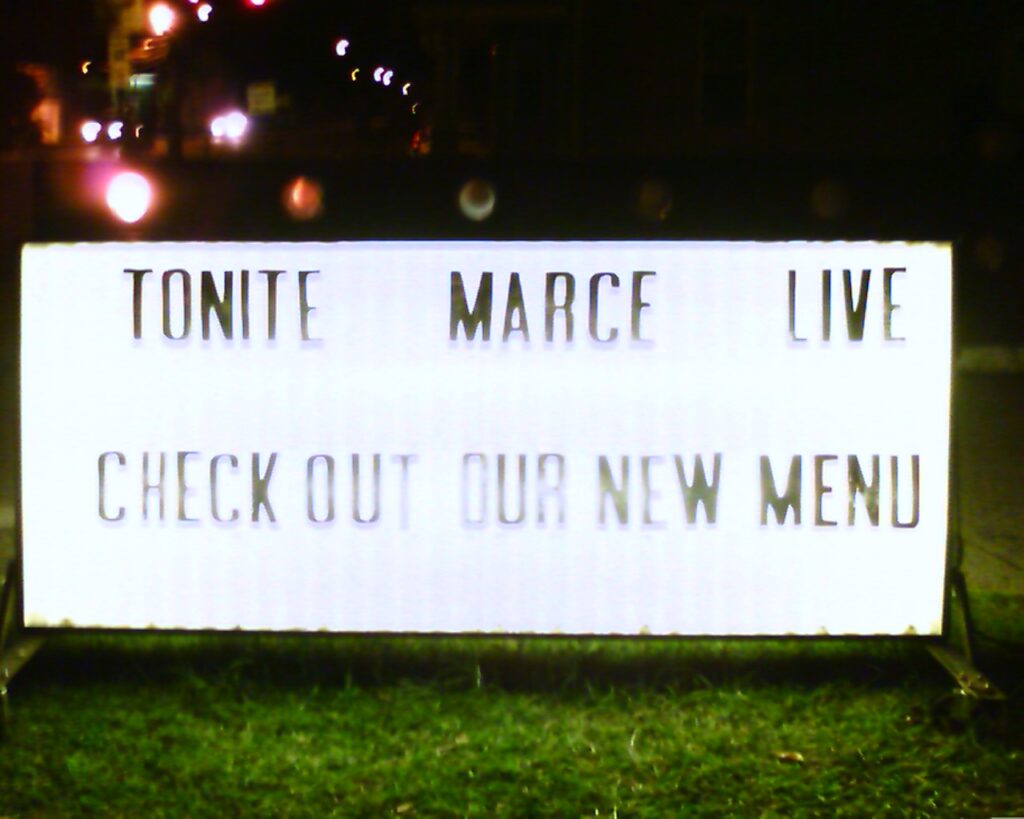 TONITE MARCE LIVE
CHECK OUT OUR NEW MENU